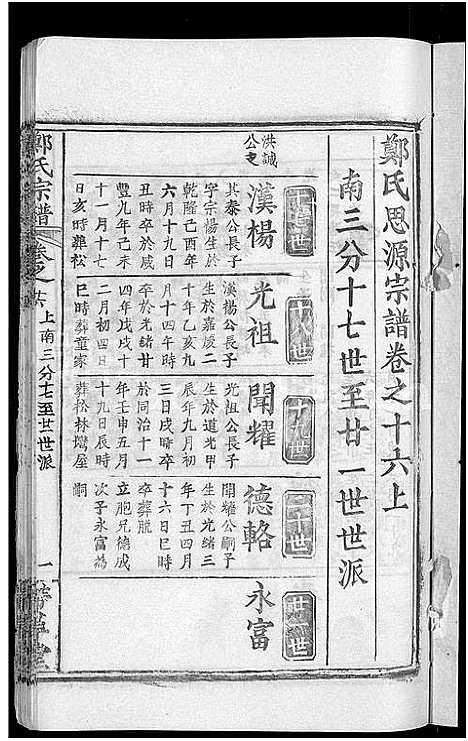 鄭氏思源宗譜卷之十六上
南三分十七世至廿一世世派
十七世
十八世
十九世
二十世
廿一世
洪誠
公支
漢楊
其泰公長子
字宗楊生於
乾隆己酉年
六月十九日
丑時卒於咸
豐九年己未
十一月十七
日亥時葬松
光祖
漢楊公長子
生於嘉慶二
十年乙亥九
月十四午時
卒於光緒廿
四年戊戌十
二月初四日
巳時葬童家
聞耀
光祖公長子
生於道光甲
辰年九月初
三日戌時卒
於同治十一
年壬申五月
十九日辰時
葬松林壪屋
德輅
聞耀公嗣子
生於光緒三
年丁丑四月
十六日巳時
卒葬脱
立胞兄德成
次子永富為
嗣
永富
鄭氏宗譜
卷之十六 上南三分十七至廿一世派
一